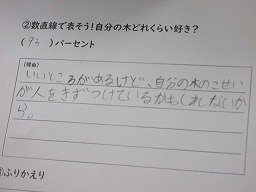 ②数直線で表そう!自分の木どれくらい好き?
( 93 )パーセント
(理由)
いいところがあるけど、自分の木のこせい
が人をきずつけているかもしれないか
ら。
ふりかえり